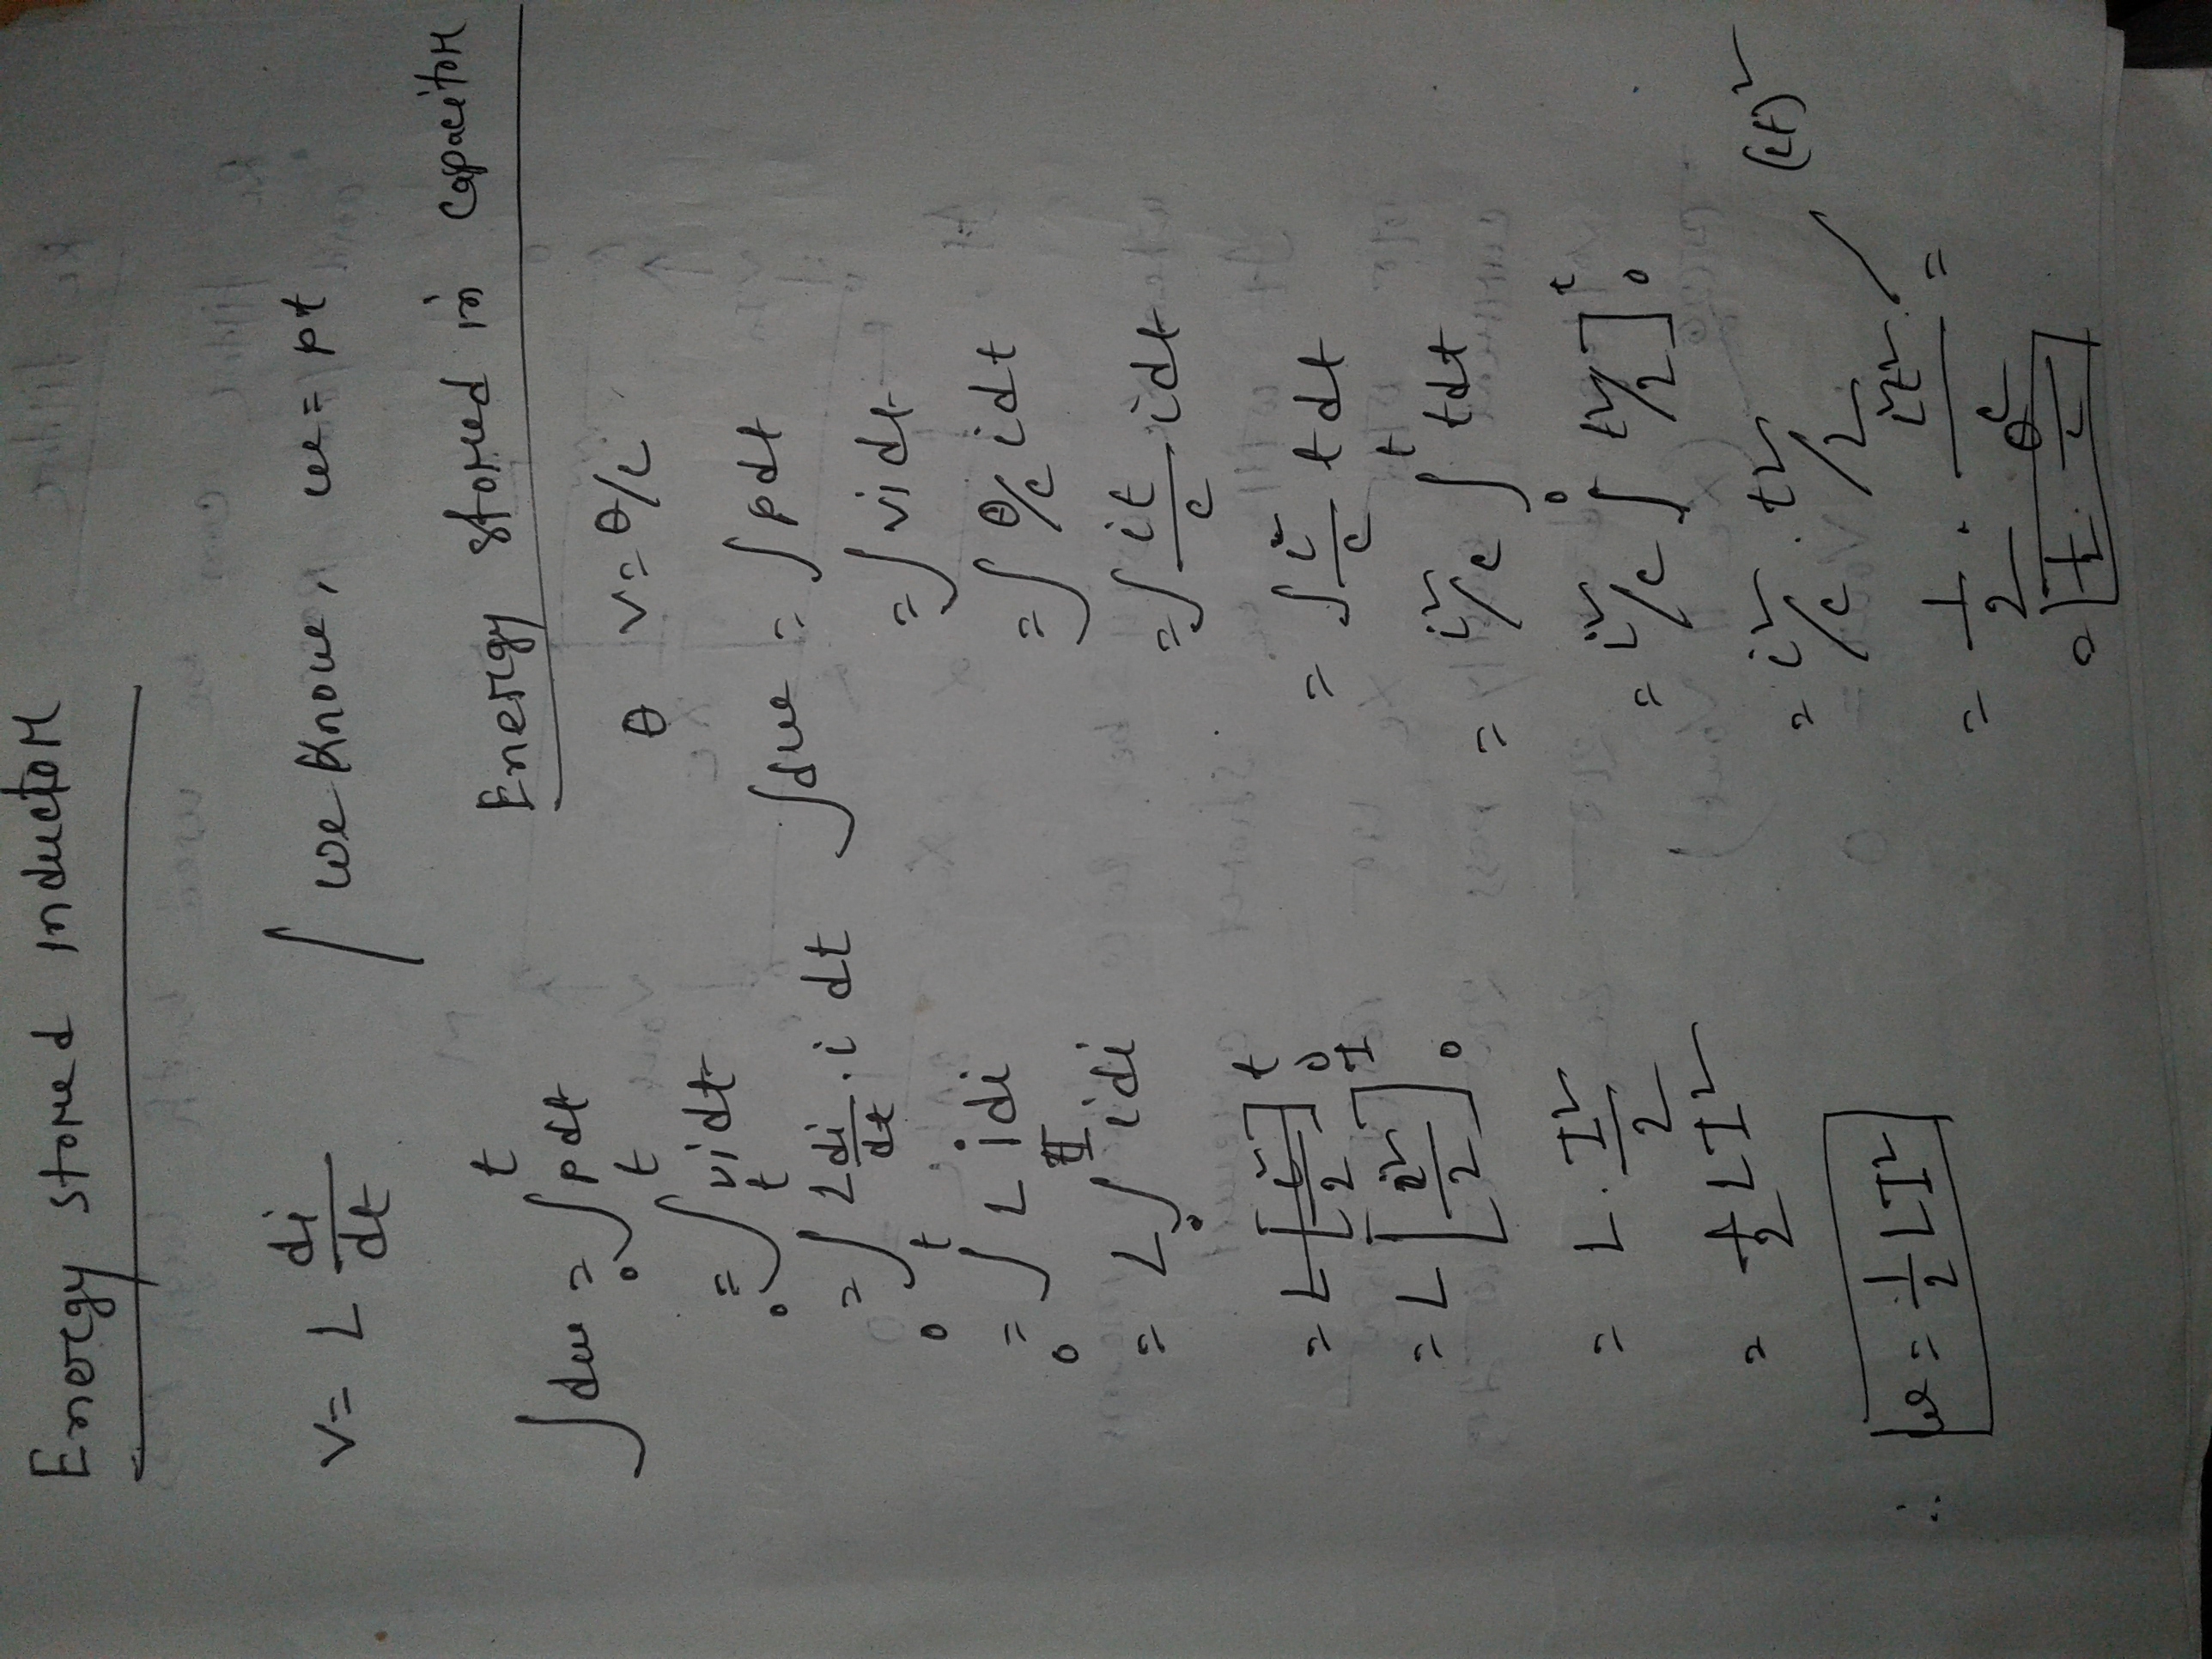 Energy stored inductor
v = L di/dt / we know, w = pt
∫dw = ₀∫ᵗ pdt
= ₀∫ᵗ vidt
= ₀∫ᵗ L di/dt . i dt
= ₀∫ᵗ L idi
= L ₀∫ᴵ idi
= L [i²/2]ᵗ₀
= L [i²/2]ᴵ₀
= L . I²/2
= 1/2 LI²
∴ w = 1/2 LI²
Energy stored in capacitor
θ v = θ/c
∫dw = ∫pdt
= ∫vidt
= ∫ θ/c idt
= ∫ it/c idt
= ∫ i²/c t dt
= i²/c ₀∫ᵗ tdt
= i²/c ∫ t²/2]ᵗ₀
= i²/c . t²/2
= 1/2 . i²t²/c = (it)²
= 1/2 . θ²/c